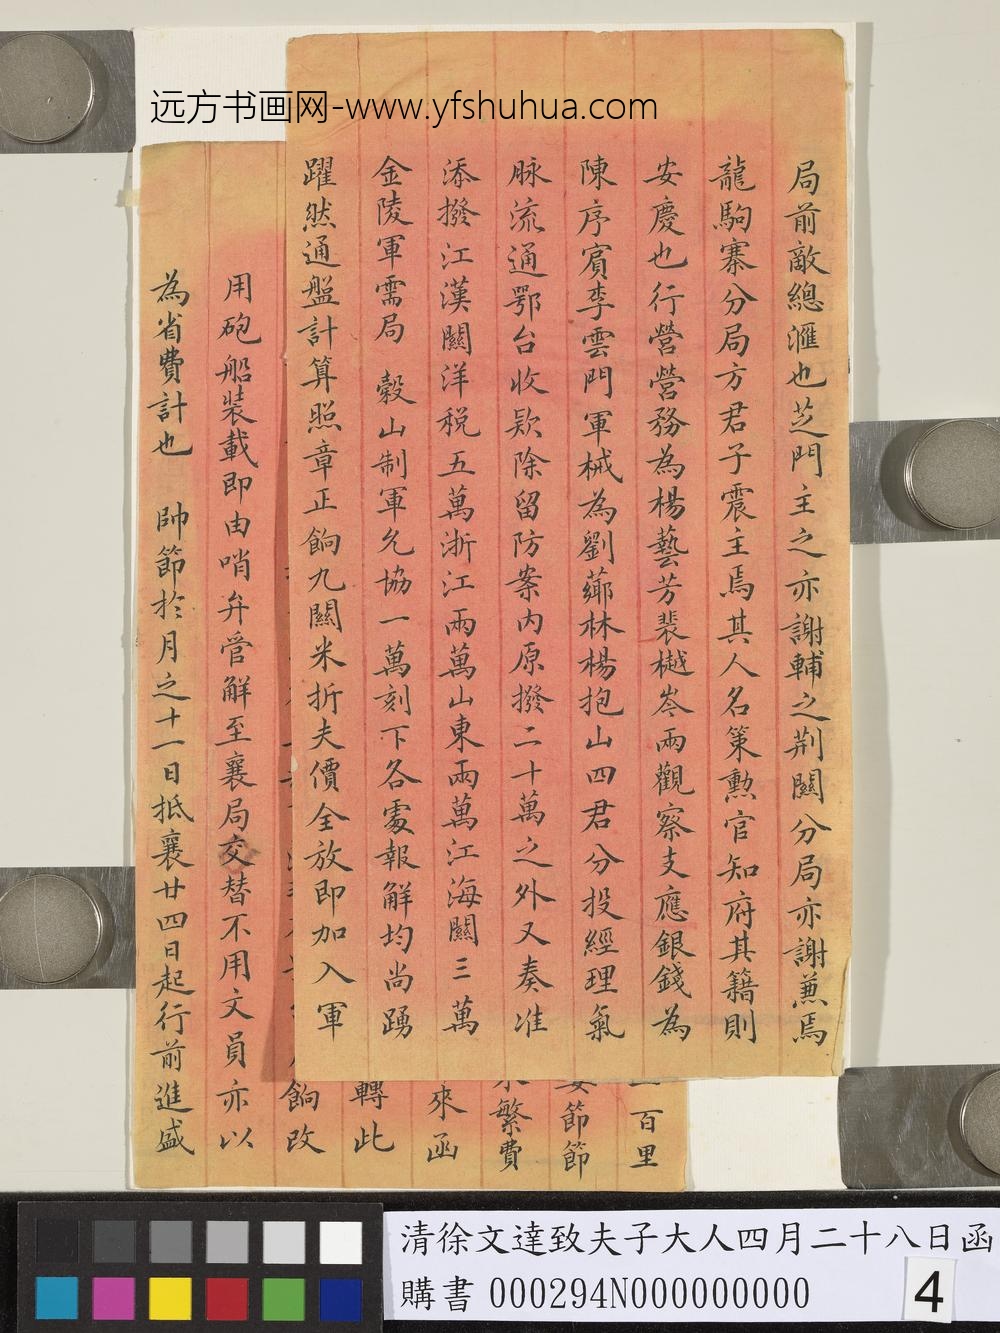 远方书画网-www.yfshuhua.com
局前敵總滙也芝門主之亦謝輔之荆關分局亦謝兼焉
龍駒寨分局方君子震主焉其人名策勲官知府其籍則
安慶也行營營務為楊藝芳裴樾岑兩觀察支應銀錢為
陳序賓李雲門軍械為劉薌林楊抱山四君分投經理氣
脉流通鄂台收欵除留防案内原撥二十萬之外又奏准
添撥江漢關洋税五萬浙江兩萬山東兩萬江海關三萬
金陵軍需局 穀山制軍允協一萬刻下各處報解均尚踴
躍然通盤計算照章正餉九關米折夫價全放即加入軍
百里
節節
繁費
來函
轉此
餉改
用砲船裝載即由哨弁管解至襄局交替不用文員亦以
為省費計也 帥節於月之十一日抵襄廿四日起行前進盛
清徐文達致夫子大人四月二十八日函
購書 000294N000000000
4